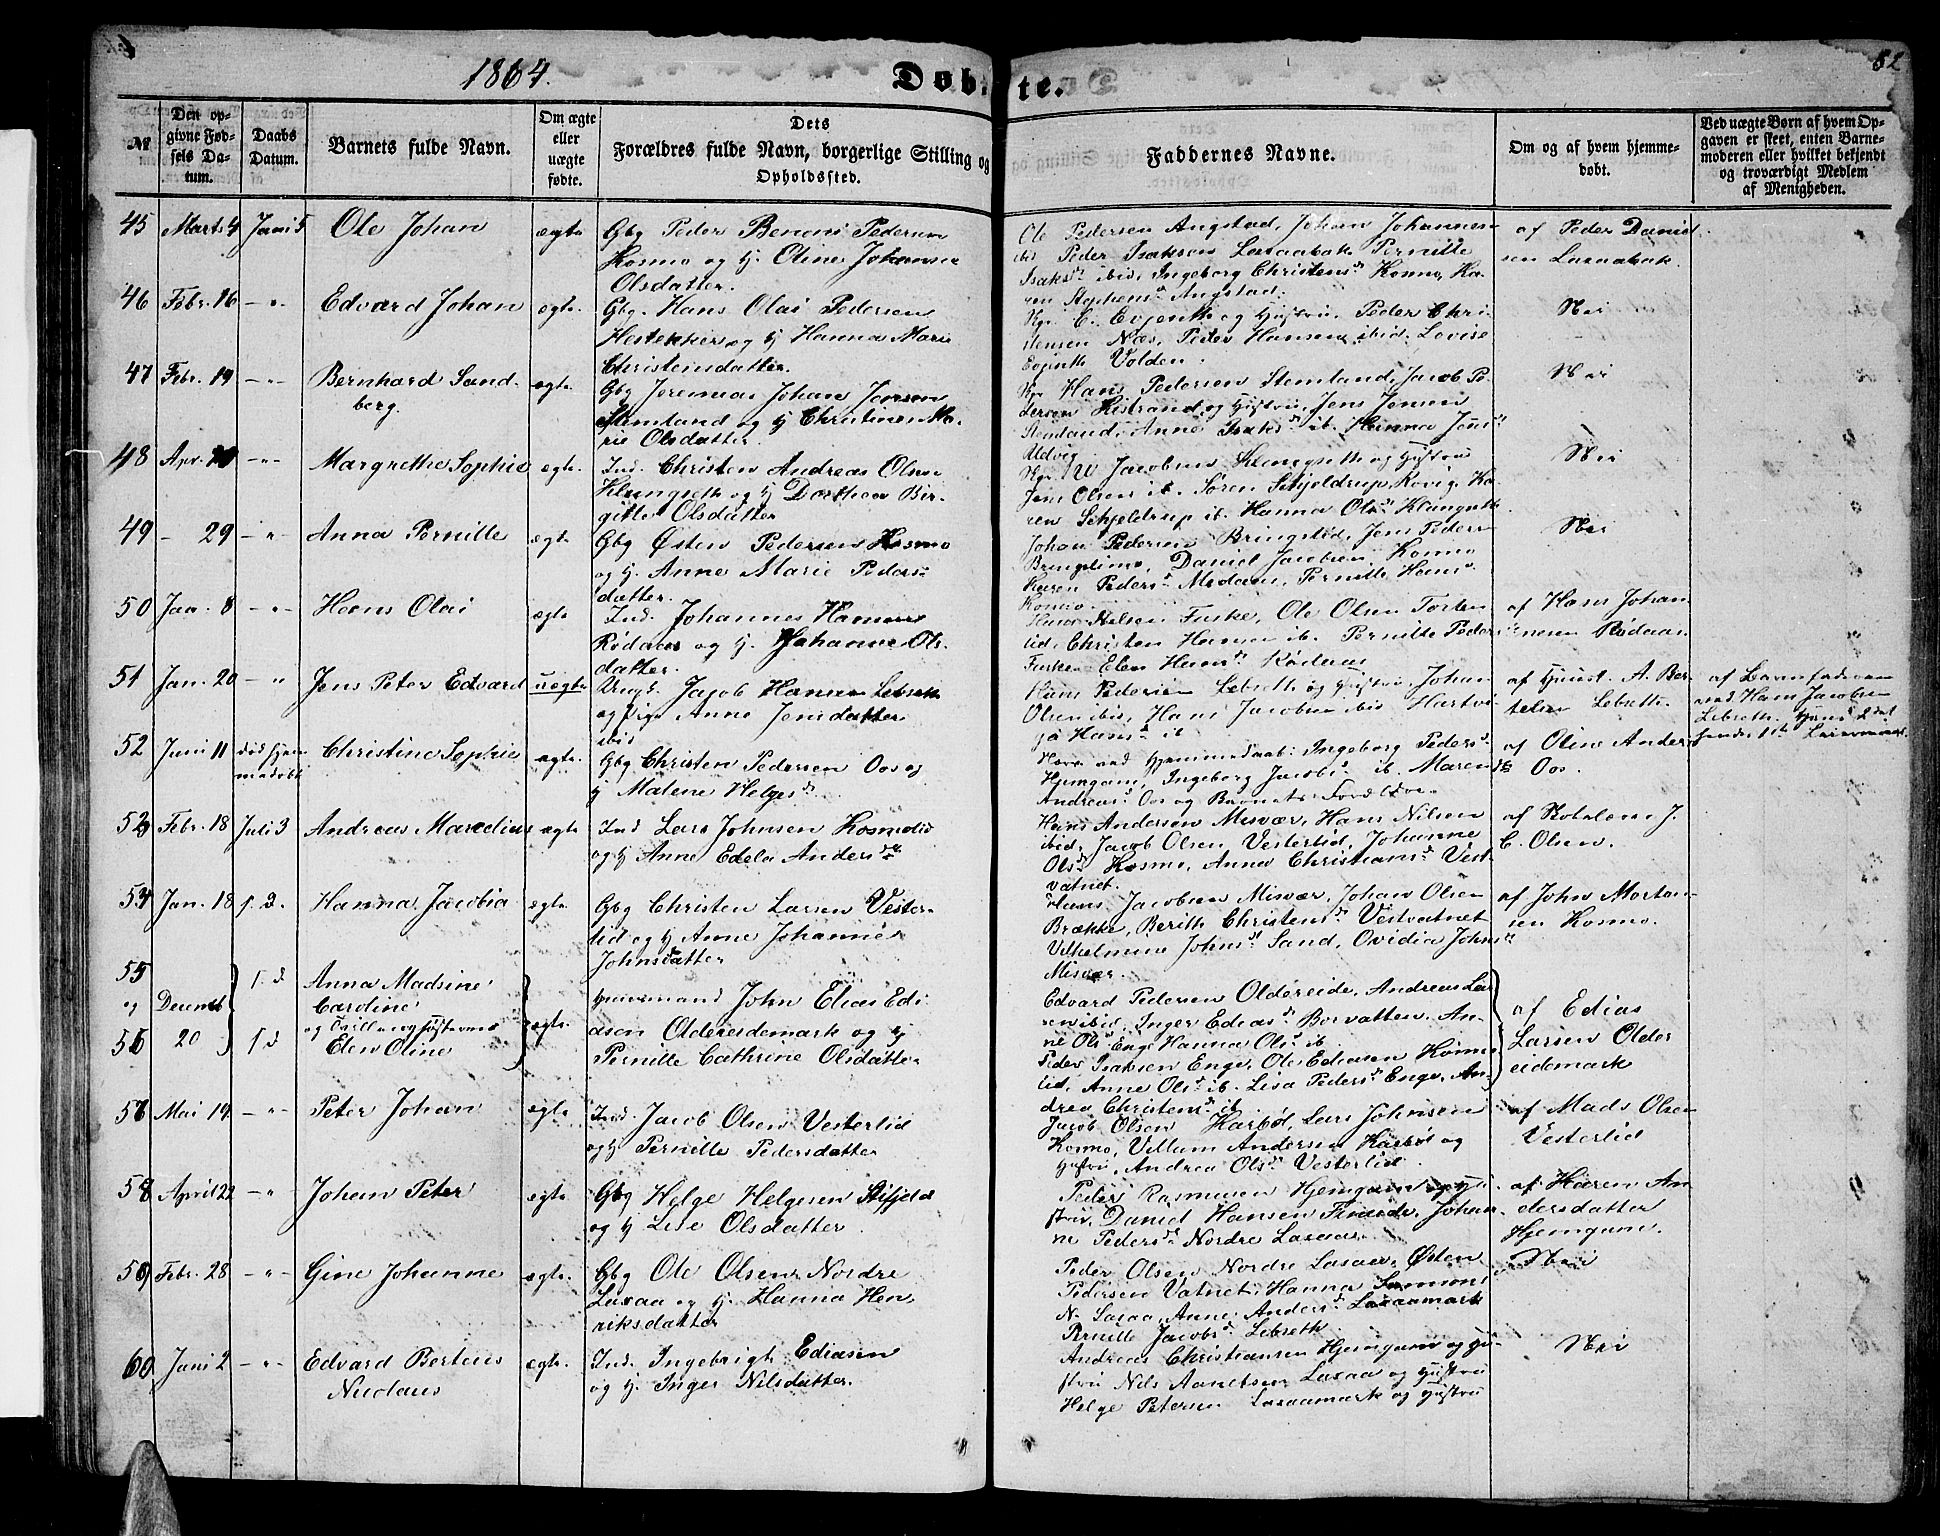 1864.
Døbte.
52
№
Den opgivne Fødsels Datum.
Daabs Datum.
Barnets fulde Navn.
Om ægte eller uægte fødte.
Dets Forældres fulde Navn, borgerlige Stilling og Opholdssted.
Faddernes Navne.
Om og af hvem hjemmedøbt.
Ved uægte Børn af hvem Opgaven er skeet, enten Barnemoderen eller hvilket bekjendt og troværdigt Medlem af Menigheden.
45 Marts 4 Juni 5 Ole Johan ægte Gbg Peder Benoni Pedersen
Kosmo og h. Oline Johanna
Olsdatter.
Ole Pedersen Angstad, Johan Johannes-
Peder Isaksen Laxaabak Pernille
Isaksd ibid, Ingeborg Christensd Kosmo, Ka-
ren Stephensd Angstad.
af Peder Daniel-
sen Laxaabak.
46 Febr. 16 - " - Edvard Johan ægte. Gbg. Hans Olai Pedersen
og h Hanna Marie
Christensdatter.
E. Evjenth og Hustru, Peder Chri-
stensen Næs, Peder Hansen ibid. Lovise
Evjenth Volden.
Nei
47 Febr. 19 - " - Bernhard Sand-
berg. ægte. Gbg Jeremias Johan Jensen
Stemland og h Christine Ma-
rie Olsdatter.
Hans Pedersen Stemland, Jacob Pe-
dersen Kistrand og Hustru, Jens Jensen
Stemland, Anne Isaksd ib. Hanna Jensd
Udvig
Nei
48 Apr. - " - Margrethe Sophie ægte. Ind. Christen Andreas Olsen
Klungseth og h Dorthea Bir-
gitte Olsdatter
Jacobsen Klungseth og Hustru
Jens Olsen ib. Søren Schjeldrup, Kovig, Ka-
ren Schjeldrup ib. Hanna Olsd Klungseth
Nei
49 - 29 - " - Anna Pernille ægte Gbg Østen Pedersen Kosmo
og h. Anne Marie Peders-
datter.
Johan Pedersen Bringslid, Jens Peders-
Daniel Jacobsen, Kosmo
Karen Pedersd Misvær, Pernille Hansd
Kosmo.
Nei
50 Jan. 8 - " - Hans Olai ægte Ind. Johannes Hansen
Rødaas og h. Johanna Ols-
datter.
Hans Nilsen Fuske, Ole Olsen Torten-
lid, Christen Hansen ib. Pernille Peders
Fuske, Elen Hansd Røderas
af Hans Johan-
nesen Rødaas
51 Jan. 20 - " Jens Peter Edvard uægte Ungk. Jacob Hansen Lebseth
og Pige Anne Jensdatter
ibid
Hans Pedersen Lebseth og Hustru, Johan
Olsen ibid, Hans Jacobsen ibid Hartvi-
ga Hansd ib
af Hunst. A. Ber-
telsen Lebseth.
af Barnefaderen
ved Hans Jacobsen
Lebseth.
52 Juni 11 død hjem-
medøbt Christine Sophie ægte. Gbg Christen Pedersen Oos og
h Malene Helgesd.
Hjemmedaab: Ingeborg Pedersd
Hjemgam, Ingeborg Jacobsd ib. Maren
Andreasd Oos og Barnets Forældre.
af Oline Anders-
d Oos.
53 Febr. 18 Juli 3 Andreas Marcelius ægte Ind Lars Johnsen Kosmolid
og h Anne Edela Andersd
Hans Andersen Misvær, Hans Nilsen
ibid, Jacob Olsen, Vesterlid, Johanne
Olsd Kosmo, Anna Christiansd Vest-
vatnet.
af J.
C. Olsen.
54 Jan. 18 s. D. Hanna Jacobia ægte Gbg Christen Larsen Vester-
lid og h Anne Johanne
Johnsdatter
Hans Jacobsen Misvær, Johan Olsen
Brække, Berith Christensd Vestvatnet
Vilhelmine Johnsd Sand, Ovidia Johnsd
Misvær.
af John Morten-
sen Kosmo.
55 s. d Anna Madsine
og Decmbr Caroline
og Tvillingsøsteren ægte. Huusmand John Elias Edi-
56 20 s. d Elen Oline asen Oldereidemark og h
Pernille Cathrine Olsdatter
Edvard Pedersen Oldereide, Andreas Lar-
sen ibid, Inger Ediasd Borvatten, An-
ne Olsd Enge Hanna Olsd ib
Peder Isaksen Enge, Ole Ediasen Kosmo-
lid, Anne Olsd ib. Lisa Pedersd Enge, An-
drea Christensd ib
af Edias
Larsen Older-
eidemark
57 Mai 14 - " - Peter Johan ægte Ind. Jacob Olsen Vesterlid
og h Pernille Pedersdatter
Jacob Olsen Karbøl, Lars Johnsen
Kosmo, Villum Andersen Karbøl og
Hustru, Andrea Olsd Vesterlid
af Mads Olsen
Vesterlid
58 April 22 - " - Johan Peter ægte Gbg Helge Helgesen Stifjeld
og h Lise Olsdatter.
Peder Rasmusen Hjemgam og Hu-
stru, Daniel Hansen Johan-
ne Pedersd Nordre Laxaa.
af Karen An-
dersdatter
Hjemgam.
59 Febr. 28 - " - Gine Johanne ægte. Gbg Ole Olsen Nordre
Laxaa og h. Hanna Hen-
riksdatter
Peder Olsen Nordre Laxaa, Østen
Pedersen Vatnet, Hanna Simons
N. Laxaa, Anne Andersd Laxaamark
Pernille Jacobsd Lebseth.
Nei
60 Juni 2 - " - Edvard Berteus
Nicolaus ægte. Ind. Ingebrigt Ediasen
og h. Inger Nilsdatter.
Andreas Christiansen Hjemgam og Hu-
stru Nils Aanetsen Laxaa og Hustru
Helge Petersen Laxaamark og Hustru
Nei